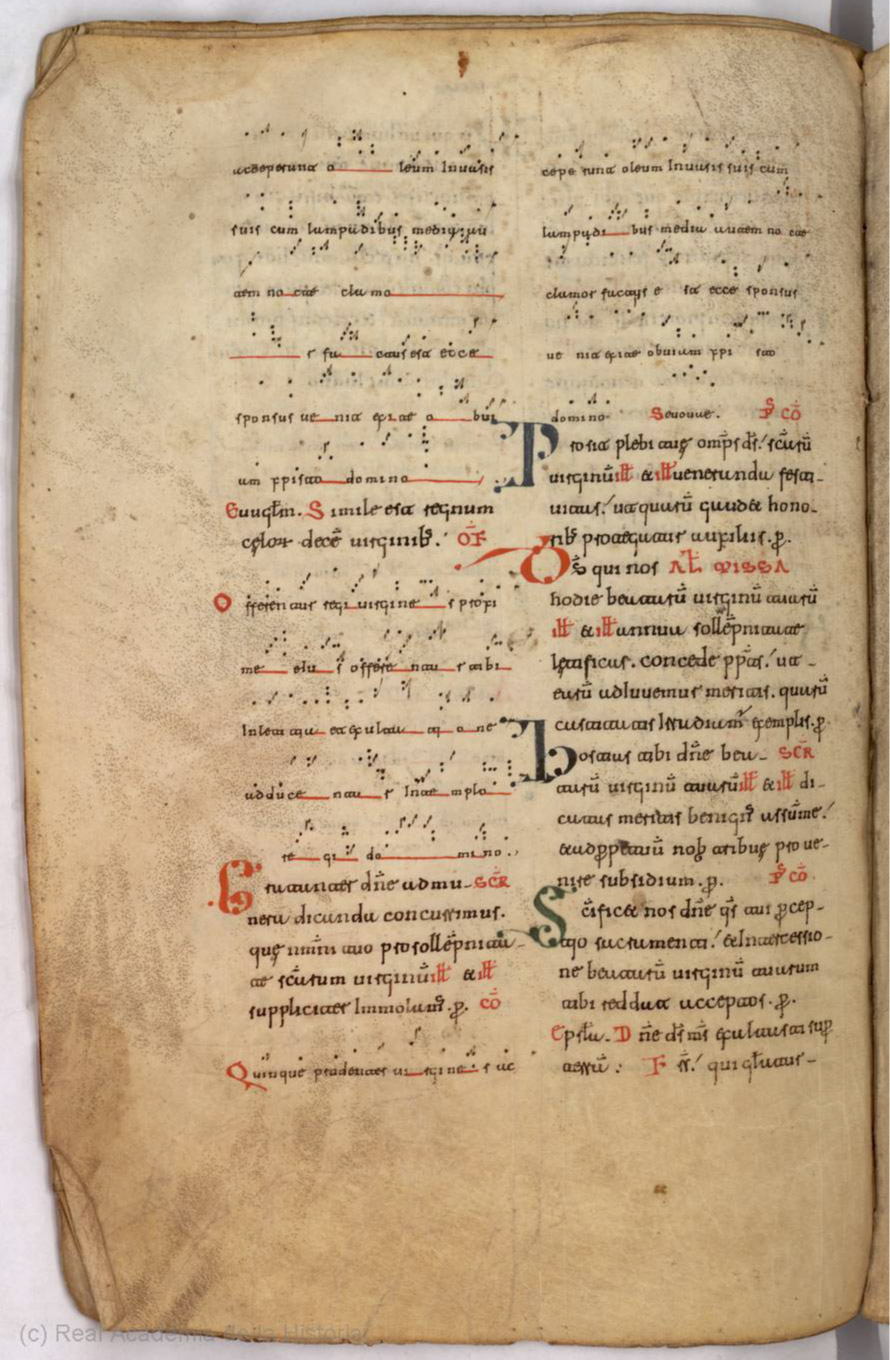 acceperunt o leum Inuasis
suis cum lampadibus mediąau
tem nocte clama
r fa ctus est ecce
sponsus ue nit exi te o bui
am xpisto domino
Euuglm. Simile est regnum
cęlor decē uirginib. OF
Offerentur regi uirgine s proxi
me eius offere ntur tibi
In leti tia et exulta ti o ne
adduce ntur In te mplo
re gi do mino.
Gratanter dn̄e ad mu SCR
nera dicanda concurrimus.
quę nomini tuo pro sollēpnita
te scōrum uirginū ill & ill
suppliciter Immolam. p. CŌ
Quinque prudentes uirgines ac
cepe runt oleum In uasis suis cum
lampadi bus media autem no cte
clamor factus e st ecce sponsus
ue nit exite obuiam xpi sto
domino Seuouae. P CŌ
Prosit plebi tuę omps ds. scōrū
uirginū ill & ill ueneranda festi
uitas. ut quarū gaudet hono
rib protegatur auxiliis. p.
Ds qui nos AL MISSA
hodie beatarū uirginū tuarū
ill & ill annua sollēpnitate
lętificas. concede ppt̄s. ut
earū adiuuemur meritis. quarū
castitatis Irradiam exemplis. p
Hostias tibi dn̄e bea SCR
tarū uirginū tuarū ill & ill di
catas meritis benign assume.
& ad ppetuū nob tribue proue
nire subsidium. p. P CŌ
Scīficet nos dn̄e qs tui pcep
tio sacramenti. & Intercessio
ne beatarū uirginū tuarum
tibi reddat acceptos. p.
Epsła. Dn̄e ds ms exaltasti sup
terrā. FR. qui glatur